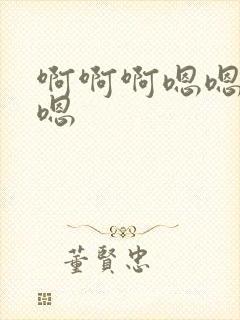 啊啊啊嗯嗯
嗯
董賢忠